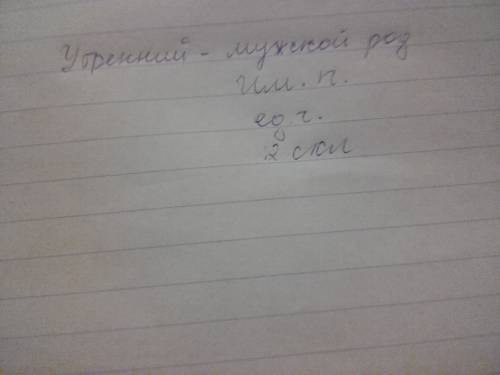 Утренний - мужской род
Им. п.
ед ч.
2 скл